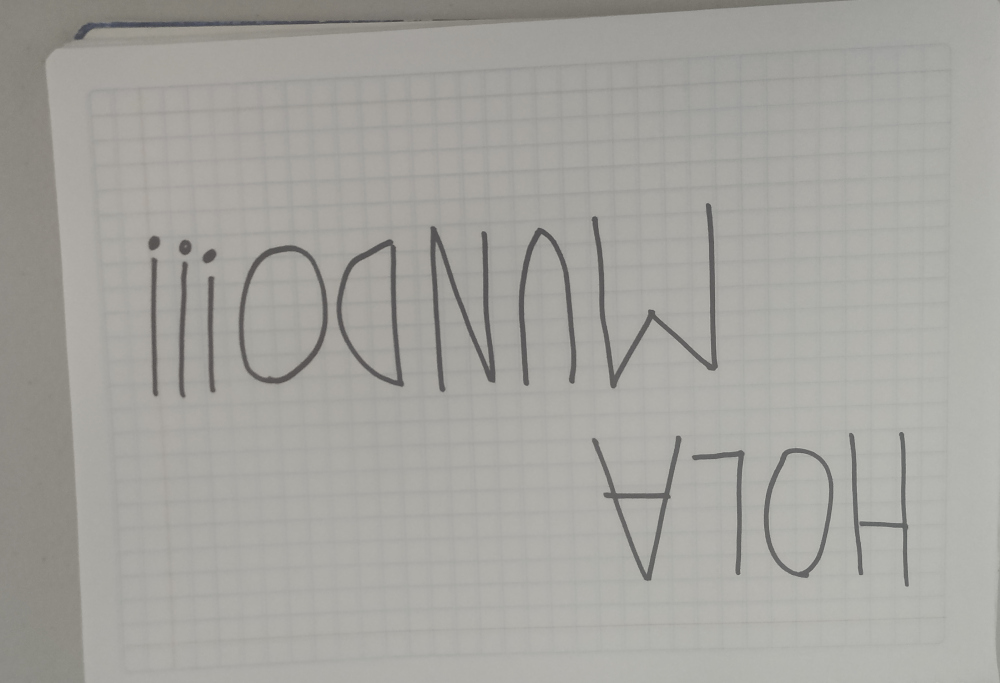 HOLA
MUNDO!!!